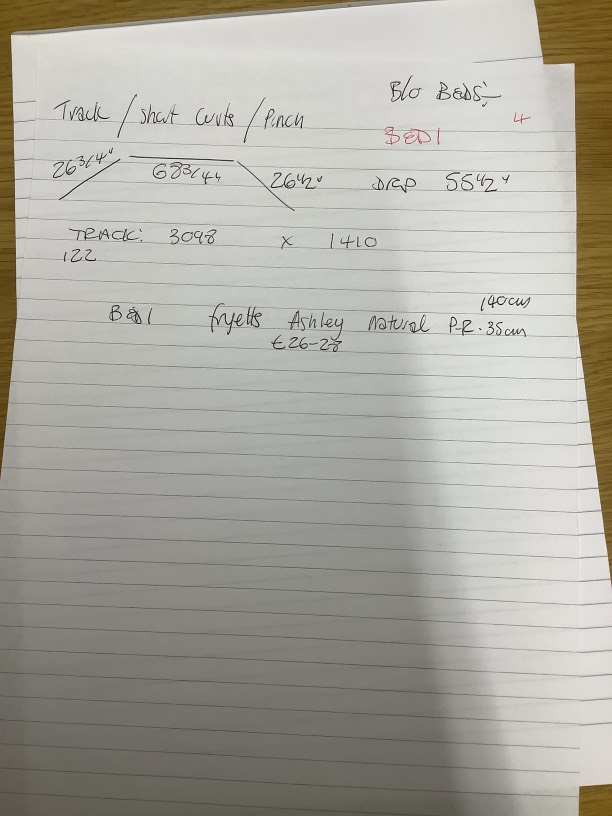 B/o BEDS:-
Track / Short Curts / Pinch
4
BED1
26 3/4" 68 3/4" 26 1/2" DROP 55 1/2"
TRACK: 3098 x 1410
122
140cms
BED1 fryetts Ashley Natural P-R. 35cm
£26-28